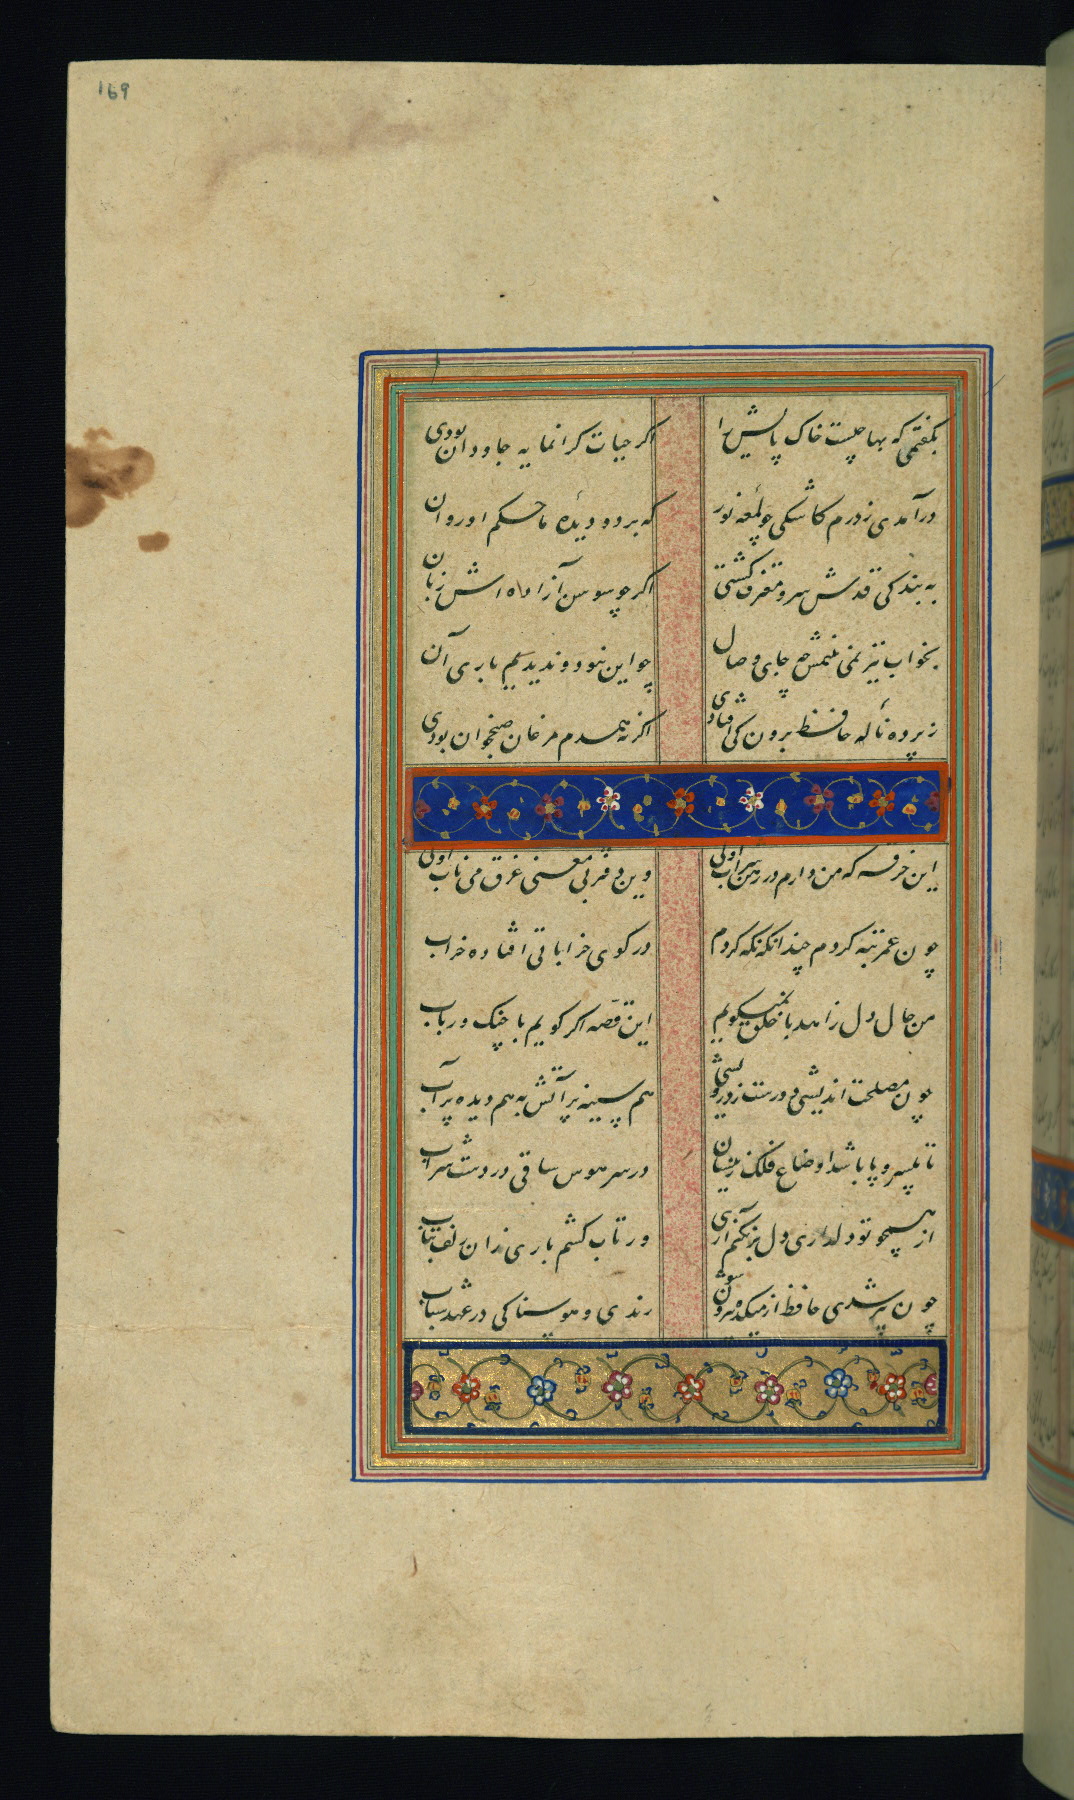 169
بگفتمی که بها چیست خاک پایش را اگر حیات گرانمایه جاودان بودی
درآمدی ز درم کاشکی چو لمعه نور که بر دو دیده ما حکم او روان
به بندگی قدش سرو معترف گشتی اگر چو سوسن آزاده اش زبان
بخواب نیز نمی بینمش چه جای وصال چو این نبود و ندیدیم باری آن
ز پرده ناله حافظ برون کی افتادی اگر نه همدم مرغان صبحخوان بودی
این خرقه که من دارم در رهن شراب اولی وین دفتر بی معنی غرق می ناب اولی
چون عمر تبه کردم چندانکه نگه کردم در کوی خراباتی افتاده خراب
من حال دل زاهد با خلق نمیگویم این قصه اگر گویم با چنگ و رباب
چون مصلحت اندیشی دورست ز درویشی هم سینه پر آتش به هم دیده پر آب
تا بیسر و پا باشد اوضاع فلک زینسان در سر هوس ساقی در دست شراب
از همچو تو دلداری دل برنکنم آری ور تاب کشم باری زان زلف بتاب
چون پیر شدی حافظ از میکده بیرون شو رندی و هوسناکی در عهد شباب